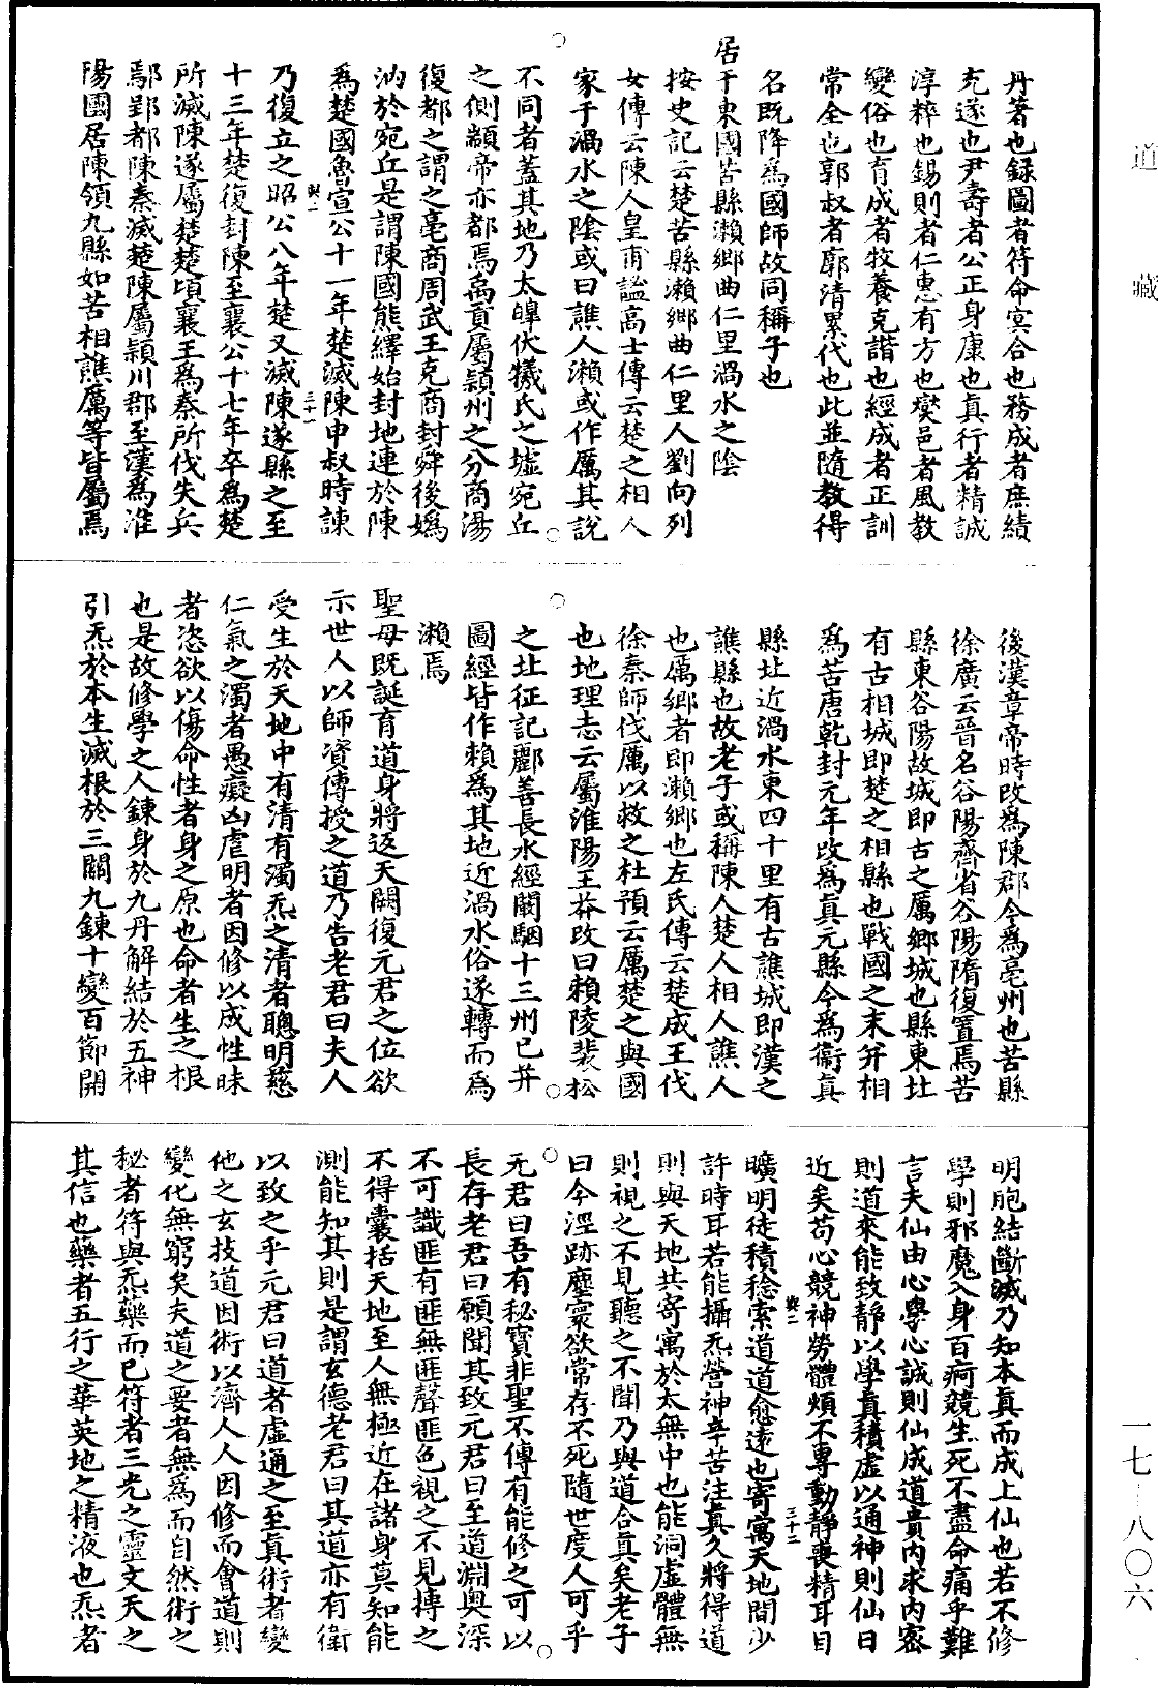 道藏
丹著也録圖者符命㝠合也務成者庶績
克遂也尹壽者公正身康也真行者精誠
淳粹也錫則者仁惠有方也燮邑者風教
變俗也育成者牧養克諧也經成者正訓
常全也郭叔者廓清累代也此並隨教得
名既降為國師故同稱子也
居于東國苦縣瀬鄉曲仁里渦水之陰
按史記云楚苦縣瀬鄉曲仁里人劉向列
女傳云陳人皇甫謐高士傳云楚之相人
家于渦水之陰或曰譙人瀬或作厲其說
不同者蓋其地乃太皥伏犧氏之墟宛丘
之側顓帝亦都焉禹貢屬潁州之分商湯
復都之謂之亳商周武王克商封舜後媯
汭於宛丘是謂陳國熊繹始封地連於陳
為楚國魯宣公十一年楚滅陳申叔時諫
乃復立之昭公八年楚又滅陳遂縣之至
十三年楚復封陳至襄公十七年卒為楚
所滅陳遂屬楚楚頃襄王為秦所伐失兵
鄢郢都陳秦滅楚陳屬潁川郡至漢為淮
陽國居陳領九縣如苦相譙厲等皆屬焉
後漢章帝時改為陳郡今為亳州也苦縣
徐廣云晉名谷陽齊省谷陽隋復置焉苦
縣東谷陽故城即古之厲鄉城也縣東北
有古相城即楚之相縣也戰國之末并相
為苦唐乾封元年改為真元縣今為衛真
縣北近渦水東四十里有古譙城即漢之
譙縣也故老子或稱陳人楚人相人譙人
也厲鄉者即瀬鄉也左氏傳云楚成王伐
徐秦師伐厲以救之杜預云厲楚之與國
也地理志云屬淮陽王莽改曰賴陵裴松
之北征記酈善長水經闞駰十三州已并
圖經皆作賴為其地近渦水俗遂轉而為
瀬焉
聖母既誕育道身將返天闕復元君之位欲
示世人以師資傳授之道乃告老君曰夫人
受生於天地中有清有濁炁之清者聰明慈
仁氣之濁者愚癡凶虐明者因修以成性昧
者恣欲以傷命性者身之原也命者生之根
也是故修學之人鍊身於九丹解結於五神
引炁於本生滅根於三關九鍊十變百節開
明胞結斷滅乃知本真而成上仙也若不修
學則邪魔入身百痾競生死不盡命痛乎難
言夫仙由心學心誠則仙成道貴內求內密
則道來能致靜以學真積虛以通神則仙日
近矣苟心競神勞體煩不專動靜喪精耳目
曠明徒積稔索道道愈遠也寄寓天地間少
許時耳若能攝炁營神辛苦注真久將得道
則與天地共寄寓於太無中也能洞虛體無
則視之不見聽之不聞乃與道合真矣老子
曰今滛跡塵寰欲常存不死隨世度人可乎
元君曰吾有秘寶非聖不傳有能修之可以
長存老君曰願聞其致元君曰至道淵奧深
不可識匪有匪無匪聲匪色視之不見摶之
不得囊括天地至人無極近在諸身莫知能
測能知其則是謂玄德老君曰其道亦有衛
以致之乎元君曰道者虛通之至真術者變
他之玄技道因術以濟人人因修而會道則
變化無窮矣夫道之要者無為而自然術之
秘者符與炁藥而已符者三光之靈文天之
其信也藥者五行之華英地之精液也炁者
一七—八〇六